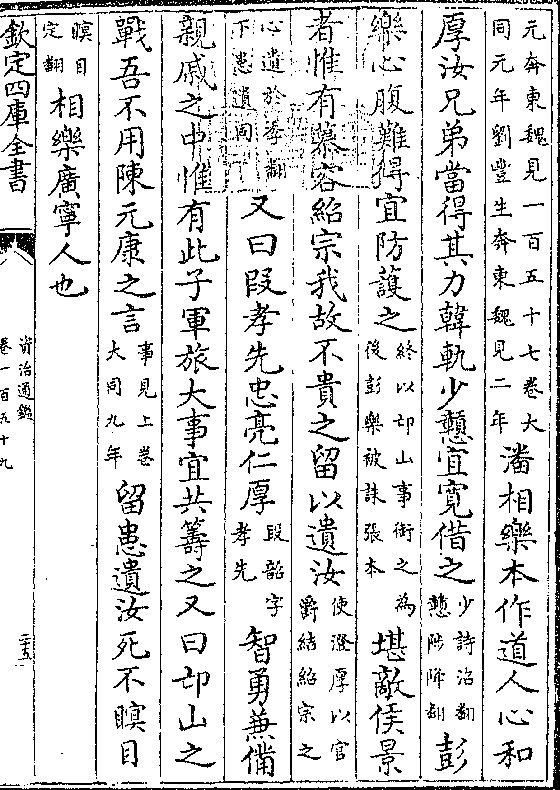 元奔東魏見一百五十七卷大
同元年劉豐生奔東魏見二年
潘相樂本作道人心和
厚汝兄弟當得其力韓軌少戇宜寛借之
少詩沼翻
戇陟降翻
彭
樂心腹難得宜防護之
終以邙山事銜之為
後彭樂被誅張本
堪敵侯景
者惟有慕容紹宗我故不貴之留以遺汝
使澄厚以官
爵結紹宗之
心遺於季翻
下患遺同
又曰段孝先忠亮仁厚
段韶字
孝先
智勇兼備
親戚之中惟有此子軍旅大事宜共籌之又曰邙山之
戰吾不用陳元康之言
事見上卷
大同九年
留患遺汝死不瞑目
瞑目
定翻
相樂廣寧人也
欽定四庫全書
資治通鑑
卷一百五十九
二十五